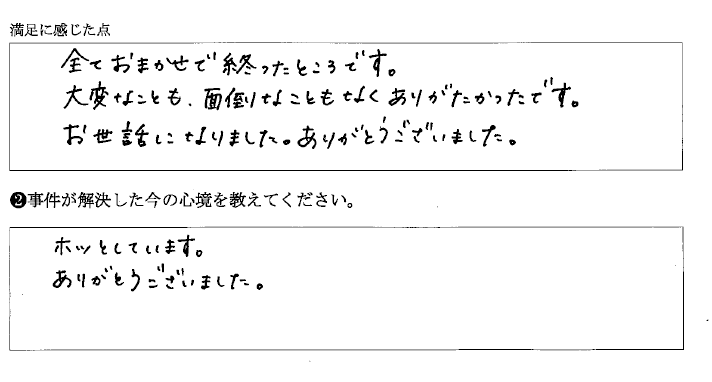 満足に感じた点
全ておまかせで終ったところです。
大変なことも、面倒なこともなくありがたかったです。
お世話になりました。ありがとうございました。
❷事件が解決した今の心境を教えてください。
ホッとしています。
ありがとうございました。